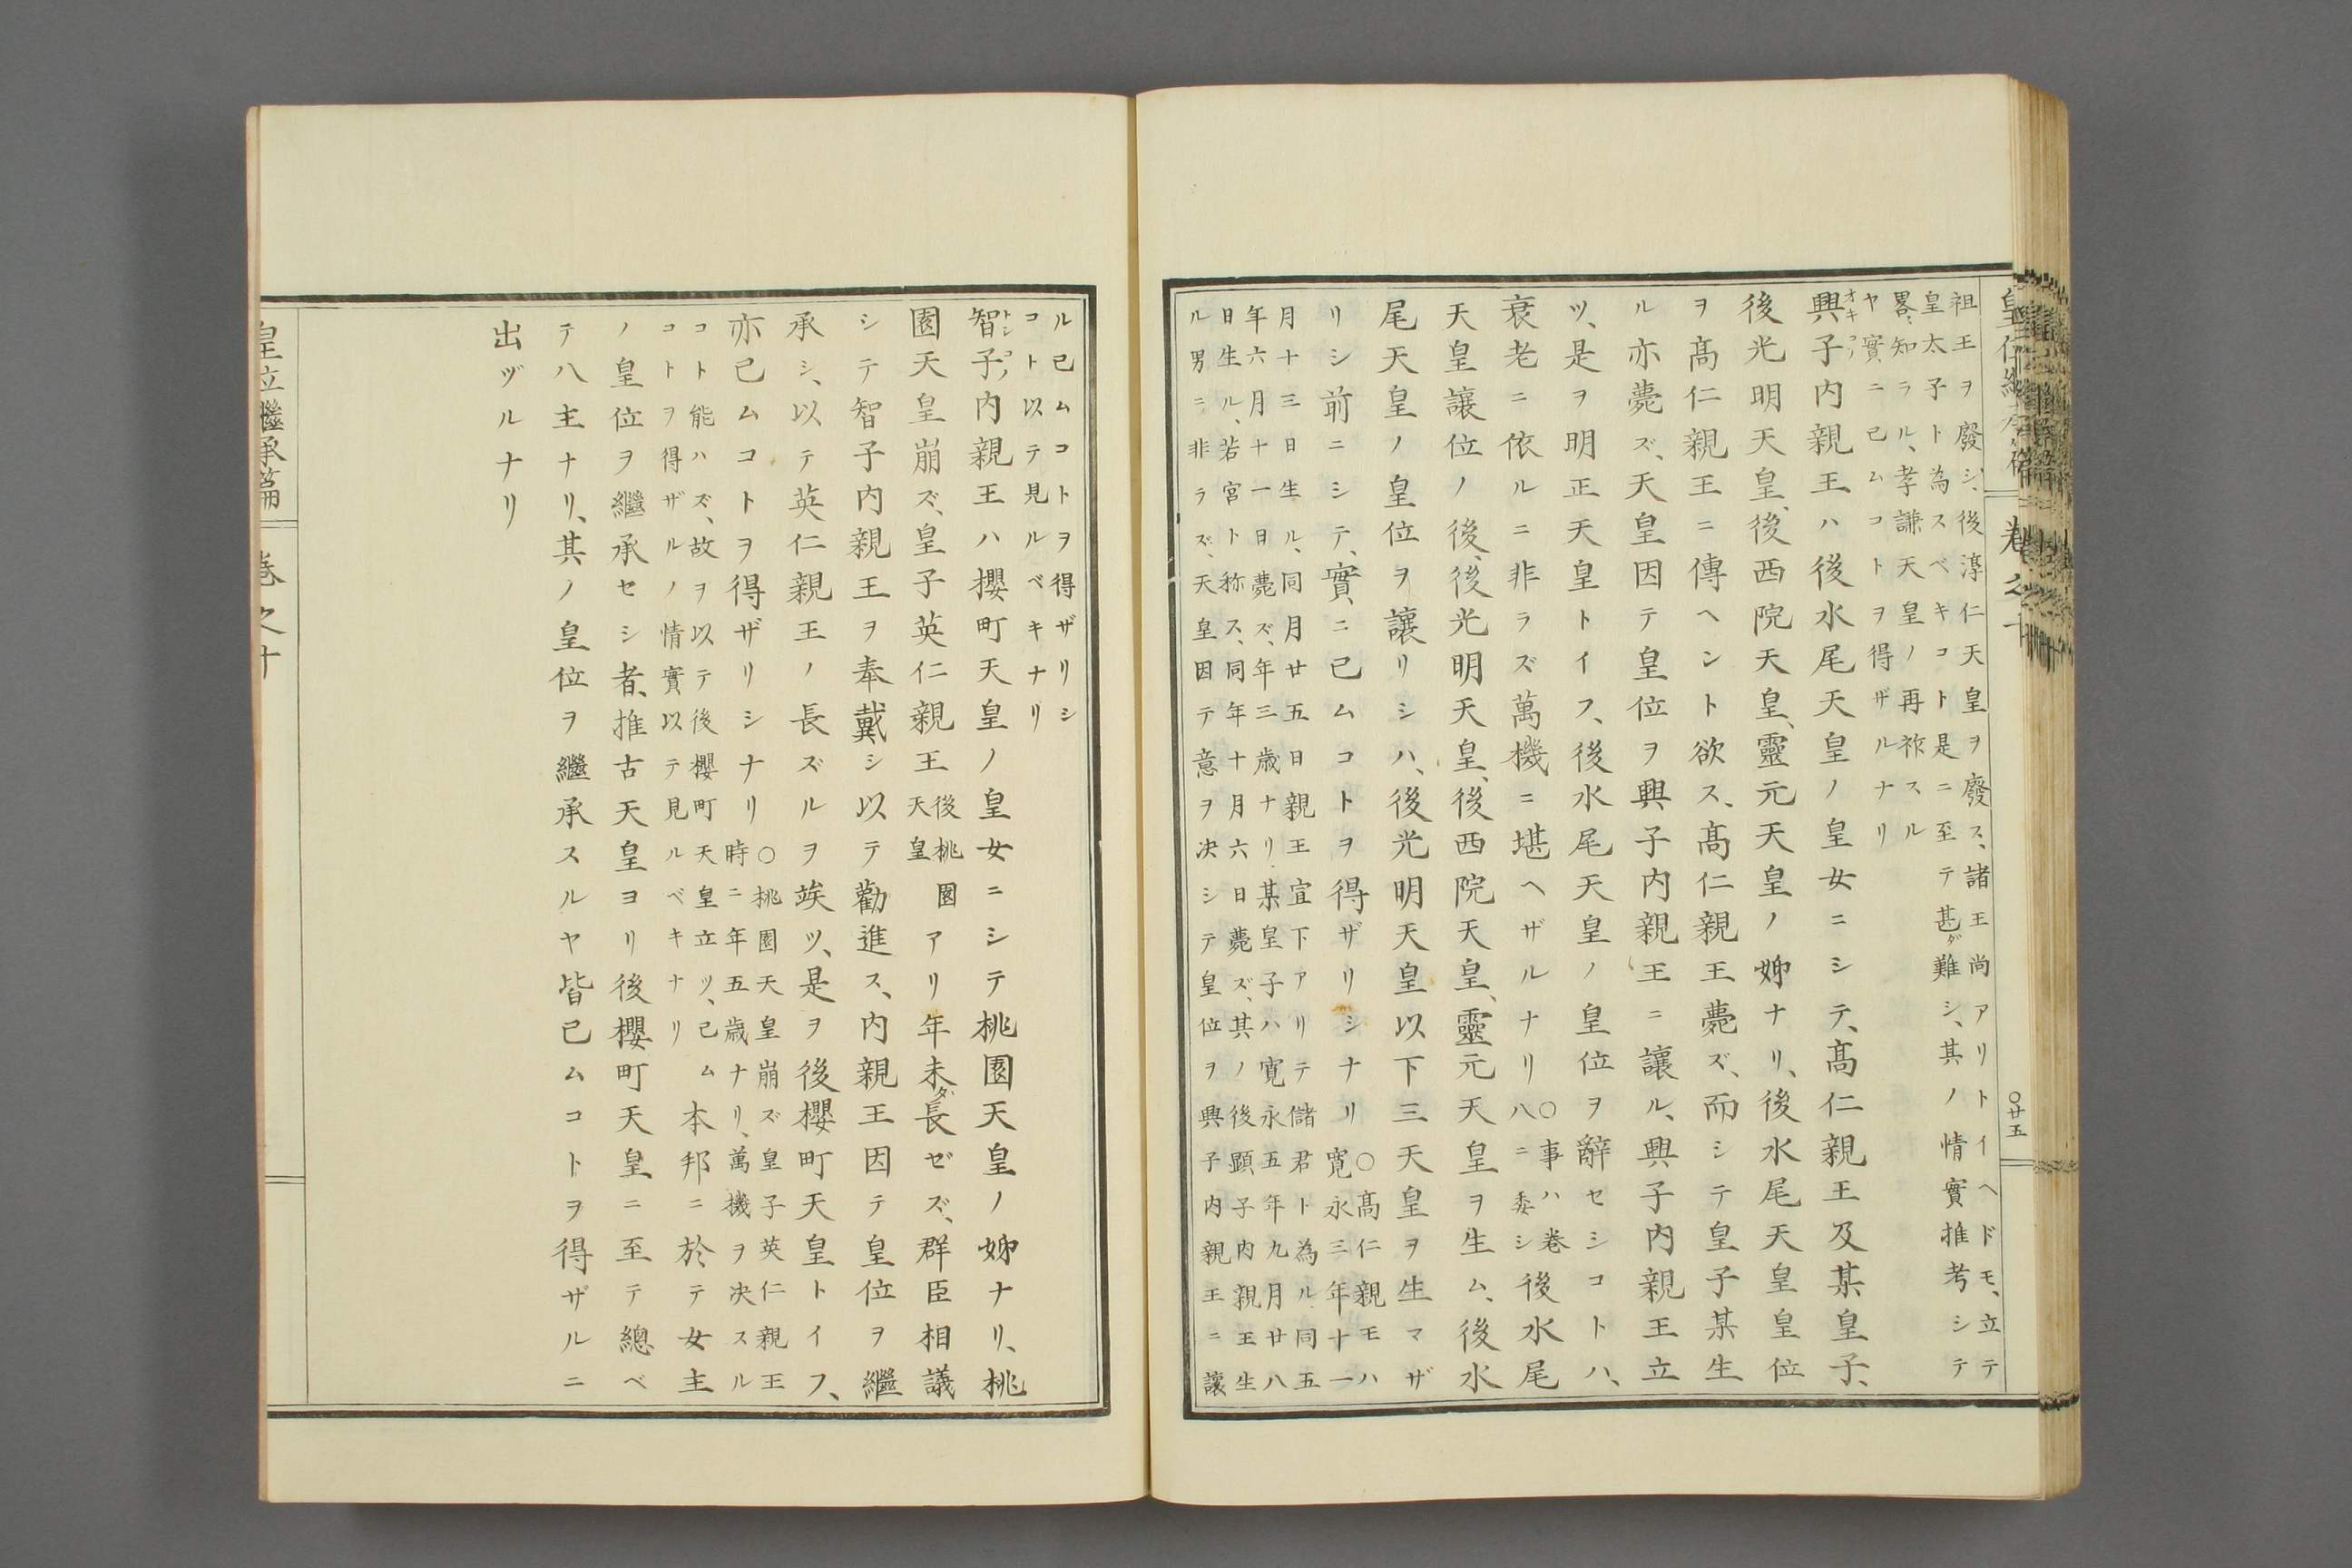 祖王ヲ廢シ、後淳仁天皇ヲ廢ス、諸王尚アリトイヘドモ、立テ
皇太子ト為スベキコト是ニ至テ甚ダ難シ、其ノ情實推考シテ
畧、知ラル、孝謙天皇ノ再祚スル
ヤ實ニ已ムコトヲ得ザルナリ
興子内親王ハ後水尾天皇ノ皇女ニシテ、髙仁親王及某皇子、
オキコノ
後光明天皇、後西院天皇、靈元天皇ノ姉ナリ、後水尾天皇皇位
ヲ髙仁親王ニ傳ヘント欲ス、髙仁親王薨ズ、而シテ皇子某生
ル亦薨ズ、天皇因テ皇位ヲ興子内親王ニ讓ル、興子内親王立
ツ、是ヲ明正天皇トイフ、後水尾天皇ノ皇位ヲ辭セシコトハ、
衰老ニ依ルニ非ラズ萬機ニ堪ヘザルナリ
〇事ハ卷
八ニ委シ
後水尾
天皇讓位ノ後、後光明天皇、後西院天皇、靈元天皇ヲ生ム、後水
尾天皇ノ皇位ヲ讓リシハ、後光明天皇以下三天皇ヲ生マザ
リシ前ニシテ、實ニ已ムコトヲ得ザリシナリ
〇髙仁親王ハ
寛永三年十一
月十三日生ル、同月廿五日親王宣下アリテ儲君ト為ル、同五
年六月十一日薨ズ、年三歳ナリ、某皇子ハ寛永五年九月廿八
日生ル、若宮ト称ス、同年十月六日薨ズ、其ノ後顕子内親王生
ル男ニ非ラズ、天皇因テ意ヲ决シテ皇位ヲ興子内親王ニ讓
〇廿五
ル已ムコトヲ得ザリシ
コト以テ見ルベキナリ
智子内親王ハ櫻町天皇ノ皇女ニシテ桃園天皇ノ姉ナリ、桃
トシコノ
園天皇崩ズ、皇子英仁親王
後桃園
天皇
アリ年未ダ長ゼズ、群臣相議
シテ智子内親王ヲ奉戴シ以テ勸進ス、内親王因テ皇位ヲ繼
承シ、以テ英仁親王ノ長ズルヲ竢ツ、是ヲ後櫻町天皇トイフ、
亦已ムコトヲ得ザリシナリ
〇桃園天皇崩ズ皇子英仁親王
時ニ年五歳ナリ、萬機ヲ决スル
コト能ハズ、故ヲ以テ後櫻町天皇立ツ、已ム
コトヲ得ザルノ情實以テ見ルベキナリ
本邦ニ於テ女主
ノ皇位ヲ繼承セシ者、推古天皇ヨリ後櫻町天皇ニ至テ總ベ
テ八主ナリ、其ノ皇位ヲ繼承スルヤ皆已ムコトヲ得ザルニ
出ヅルナリ
皇位繼承篇 卷之十